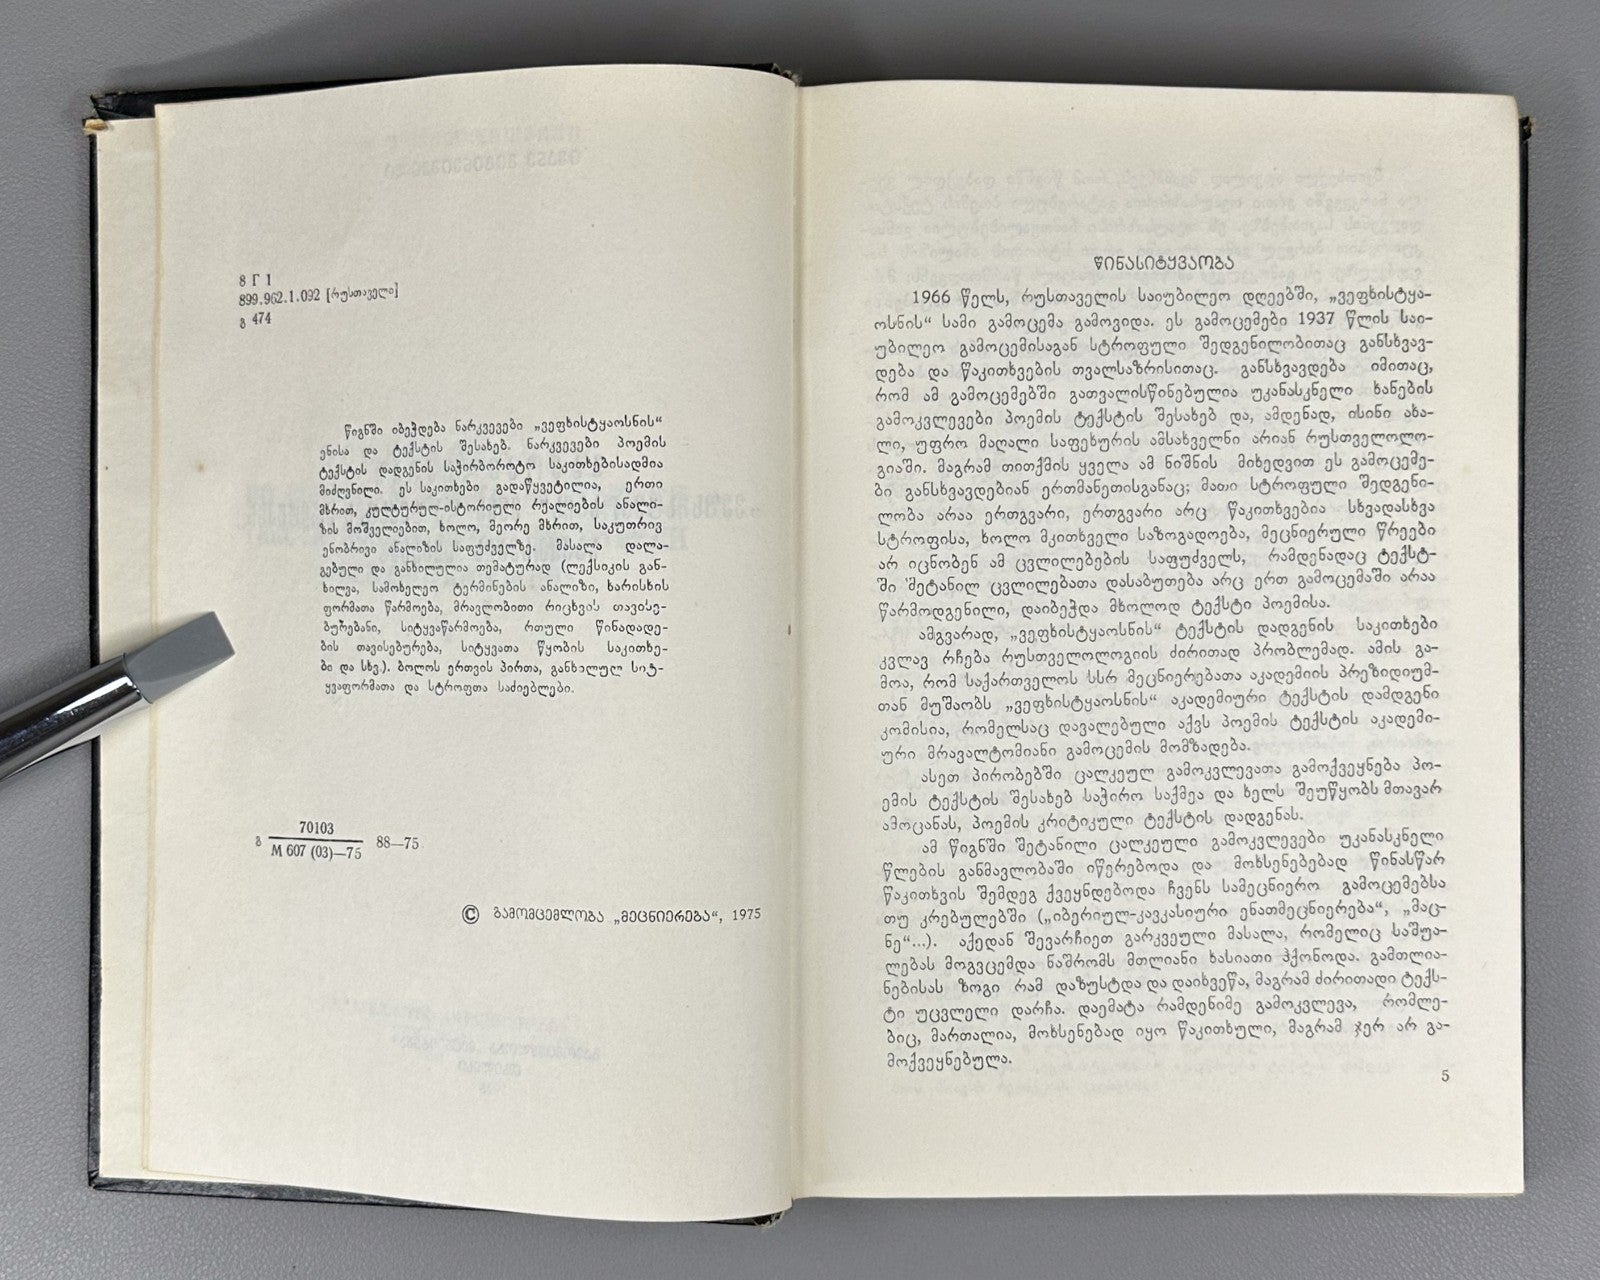 8 Г 1
899.962.1.092 [რუსთაველი]
გ 474
წიგნში იბეჭდება ნარკვევები „ვეფხისტყაოსნის“
ენისა და ტექსტის შესახებ. ნარკვევები პოემის
ტექსტის დადგენის საჭირბოროტო საკითხებისადმია
მიძღვნილი. ეს საკითხები გადაწყვეტილია, ერთი
მხრით, კულტურულ-ისტორიული რეალიების ანალი-
ზის მოშველიებით, ხოლო, მეორე მხრით, საკუთრივ
ენობრივი ანალიზის საფუძველზე. მასალა დალა-
გებული და განხილულია თემატურად (ლექსიკის გან-
ხილვა, სამოხელეო ტერმინების ანალიზი, ხარისხის
ფორმათა წარმოება, მრავლობითი რიცხვის თავისე-
ბურებანი, სიტყვაწარმოება, რთული წინადადე-
ბის თავისებურება, სიტყვათა წყობის საკითხე-
ბი და სხვ.). ბოლოს ერთვის პირთა, განხილულ სიტ-
ყვაფორმათა და სტროფთა საძიებლები.
გ 70103
М 607 (03)—75 88—75
© გამომცემლობა „მეცნიერება“, 1975
წინასიტყვაობა
1966 წელს, რუსთაველის საიუბილეო დღეებში, „ვეფხისტყა-
ოსნის“ სამი გამოცემა გამოვიდა. ეს გამოცემები 1937 წლის საი-
უბილეო გამოცემისაგან სტროფული შედგენილობითაც განსხვავ-
დება და წაკითხვების თვალსაზრისითაც. განსხვავდება იმითაც,
რომ ამ გამოცემებში გათვალისწინებულია უკანასკნელი ხანების
გამოკვლევები პოემის ტექსტის შესახებ და, ამდენად, ისინი ახა-
ლი, უფრო მაღალი საფეხურის ამსახველნი არიან რუსთველოლო-
გიაში. მაგრამ თითქმის ყველა ამ ნიშნის მიხედვით ეს გამოცემე-
ბი განსხვავდებიან ერთმანეთისგანაც; მათი სტროფული შედგენი-
ლობა არაა ერთგვარი, ერთგვარი არც წაკითხვებია სხვადასხვა
სტროფისა, ხოლო მკითხველი საზოგადოება, მეცნიერული წრეები
არ იცნობენ ამ ცვლილებების საფუძველს, რამდენადაც ტექსტ-
ში შეტანილ ცვლილებათა დასაბუთება არც ერთ გამოცემაში არაა
წარმოდგენილი, დაიბეჭდა მხოლოდ ტექსტი პოემისა.
ამგვარად, „ვეფხისტყაოსნის“ ტექსტის დადგენის საკითხები
კვლავ რჩება რუსთველოლოგიის ძირითად პრობლემად. ამის გა-
მოა, რომ საქართველოს სსრ მეცნიერებათა აკადემიის პრეზიდიუმ-
თან მუშაობს „ვეფხისტყაოსნის“ აკადემიური ტექსტის დამდგენი
კომისია, რომელსაც დავალებული აქვს პოემის ტექსტის აკადემი-
ური მრავალტომიანი გამოცემის მომზადება.
ასეთ პირობებში ცალკეულ გამოკვლევათა გამოქვეყნება პო-
ემის ტექსტის შესახებ საჭირო საქმეა და ხელს შეუწყობს მთავარ
ამოცანას, პოემის კრიტიკული ტექსტის დადგენას.
ამ წიგნში შეტანილი ცალკეული გამოკვლევები უკანასკნელი
წლების განმავლობაში იწერებოდა და მოხსენებებად წინასწარ
წაკითხვის შემდეგ ქვეყნდებოდა ჩვენს სამეცნიერო გამოცემებსა
თუ კრებულებში („იბერიულ-კავკასიური ენათმეცნიერება“, „მაც-
ნე“...). აქედან შევარჩიეთ გარკვეული მასალა, რომელიც საშუა-
ლებას მოგვცემდა ნაშრომს მთლიანი ხასიათი ჰქონოდა. გამთლია-
ნებისას ზოგი რამ დაზუსტდა და დაიხვეწა, მაგრამ ძირითადი ტექს-
ტი უცვლელი დარჩა. დაემატა რამდენიმე გამოკვლევა, რომლე-
ბიც, მართალია, მოხსენებად იყო წაკითხული, მაგრამ ჯერ არ გა-
მოქვეყნებულა.
5